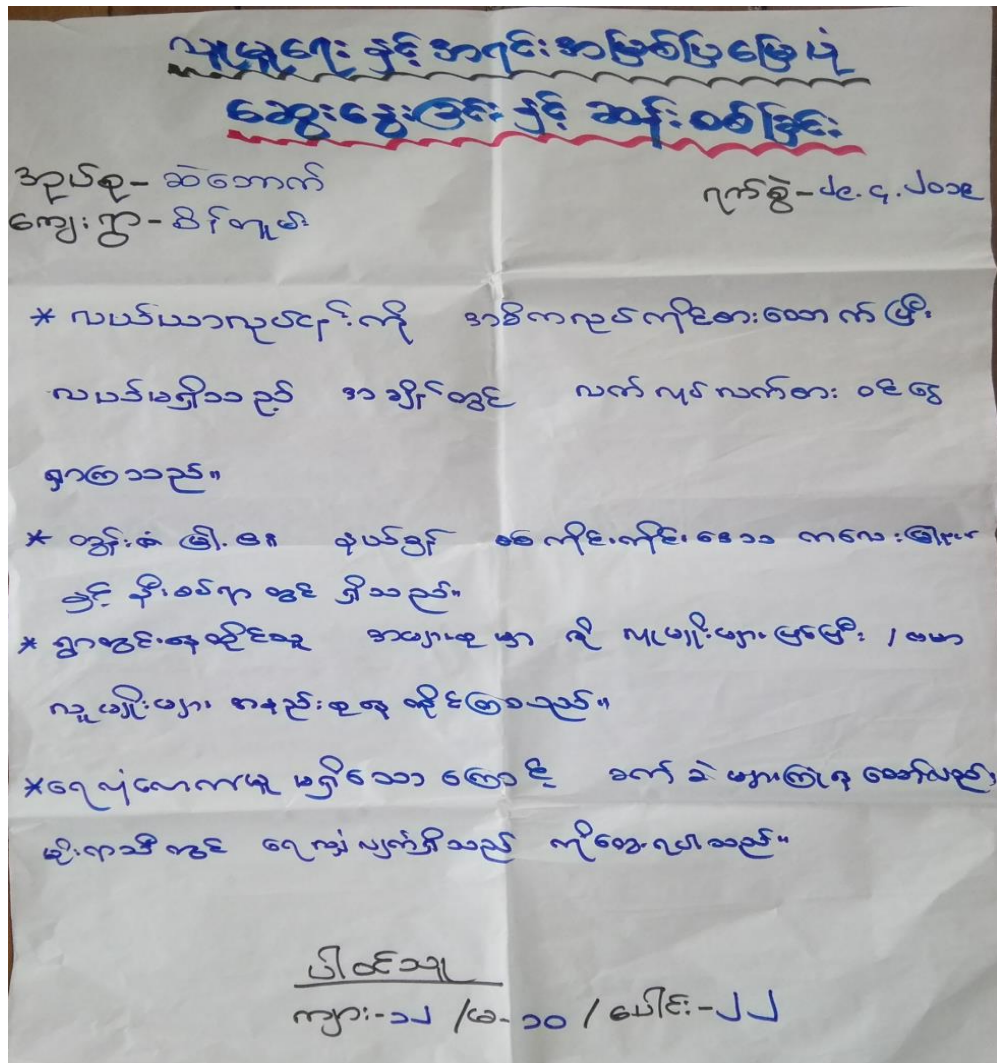 လူမှုရေး နှင့် အရင်းအမြစ်ပြမြေပုံ
ဆွေးနွေးခြင်း နှင့် ဆန်းစစ်ခြင်း
အုပ်စု- ဆဲဘောက်
ရက်စွဲ-၂၄.၄.၂၀၁၉
ကျေးရွာ-
* လယ်ယာလုပ်ငန်းကို အဓိကလုပ်ကိုင်စားသောက်ပြီး
လယ်မရှိသည့် အချိန်တွင် လက်လုပ်လက်စား ဝင်ငွေ
ရှာကြသည်။
* တွန်းဇံ မြို့နယ် နယ်ခွန် စစ်ကိုင်းတိုင်းဒေသ ကလေးမြို့နယ်
နှင့် နီးစပ်ရာ တွင် ရှိသည်။
* ရွာတွင်းနေထိုင်သူ အများစုမှာ ဇို လူမျိုးများဖြစ်ပြီး / ဗမာ
လူမျိုးများ အနည်းစုနေထိုင်ကြသည်။
*ရေလုံလောက်မှု မရှိသောကြောင့် ခက်ခဲများကြုံရသော်လည်း
မိုးရာသီတွင် ရေကြီးလျက်ရှိသည် ကိုတွေ့ရပါသည်။
ပါဝင်သူ
ကျား-၁၂ /မ-၁၀ / ပေါင်း-၂၂